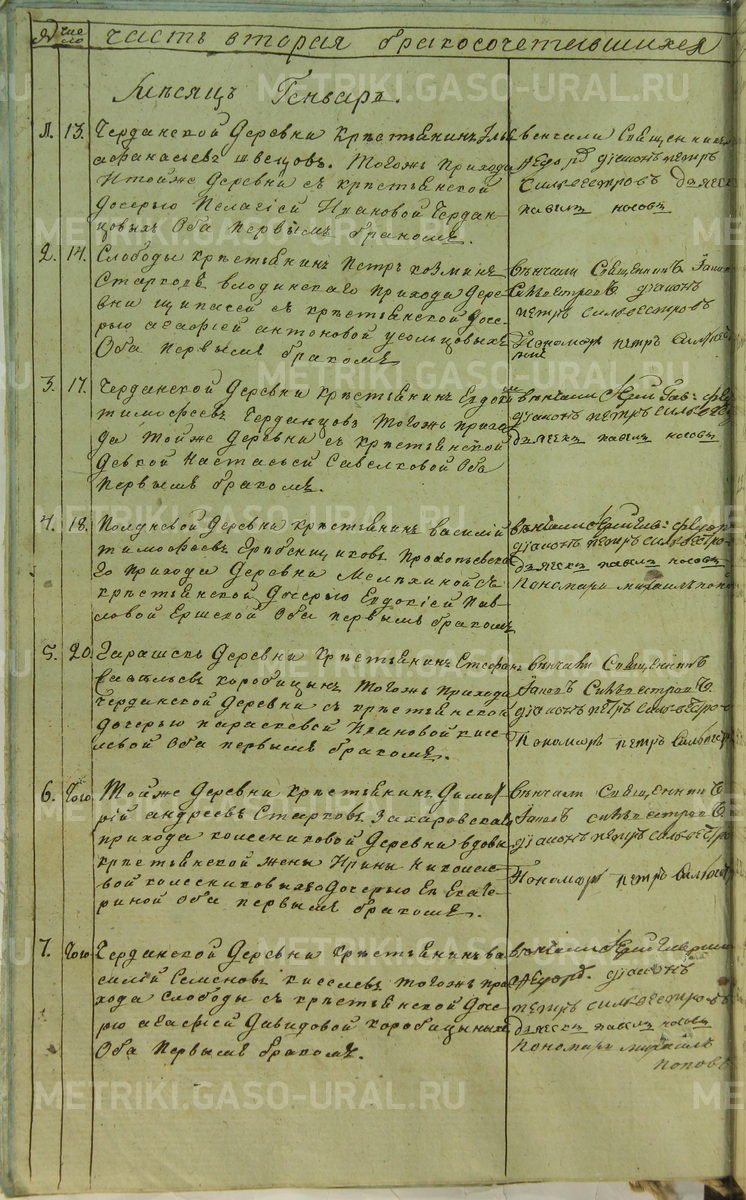 № число часть вторая бракосочетавшихся
Мѣсяцъ Генварь.
1. 13. Черданской Деревни крестьянинъ Илья
афанасьевъ швецовъ. тогожъ прихода
Итойже Деревни съ крестьянской
дочерью Пелагіей Ивановой Чердан-
цовыхъ Оба первымъ бракомъ.
венчали Священникъ
діаконъ петръ
Сильвестровъ дьячекъ
павелъ носовъ
2. 14. Слободы крестьянинъ Петръ козминъ
Старковъ прихода Дере-
вни щипачей съ крестьянской Доче-
рью агафьей антоновой усольцовыхъ
Оба первымъ бракомъ
вѣнчали Священникъ Іаковъ
Сильвестровъ діаконъ
петръ сильвестровъ
Пономарь петръ
3. 17. Черданской Деревни крестьянинъ Евдоки
тимофеевъ Черданцовъ тогожъ прихо
да тойже Деревни съ крестьянской
Девкой Настасьей Савелковой Оба
первымъ бракомъ.
вѣнчали
діаконъ петръ
дьячекъ павелъ носовъ
4. 18. Полдневой Деревни крестьянинъ василій
тимофеевъ Прокопьевска
го прихода Деревни Мелехиной съ
крестьянской Дочерью Евдокіей Пав-
ловой Ершской Оба первымъ бракомъ
вѣнчали
діаконъ петръ сильвестро-
дьячекъ павелъ носовъ
пономарь михаилъ попо
5. 20. Гарашекъ Деревни Крестьянинъ Стефанъ
Савельевъ коробицынъ тогожъ прихода
Черданской Деревни съ крестьянской
дочерью параскевой Ивановой кисе-
левой Оба первымъ бракомъ.
вѣнчали Священникъ
Іаковъ Сильвестровъ
діаконъ петръ сильвестро-
Пономарь петръ
6. Того Тойже Деревни Крестьянинъ Димит
рій андреевъ Старковъ Захаровскаго
прихода колесниковой Деревни вдовы
крестьянской жены Ирины Николае-
вой колесниковыхъ Дочерью Ея Екате-
риной Оба первымъ бракомъ.
вѣнчали Священникъ
Іаковъ сильвестровъ
діаконъ петръ сильвестро
Пономарь петръ
7. Того Черданской Деревни крестьянинъ ва
силій Семеновъ киселевъ тогожъ при
хода Слободы съ крестьянской Доче-
рью агафьей Давидовой коробицыныхъ
Оба Первымъ бракомъ.
вѣнчали
діаконъ
петръ сильвестровъ
дьячекъ павелъ носовъ
пономарь михаилъ
поповъ
METRIKI.GASO-URAL.RU